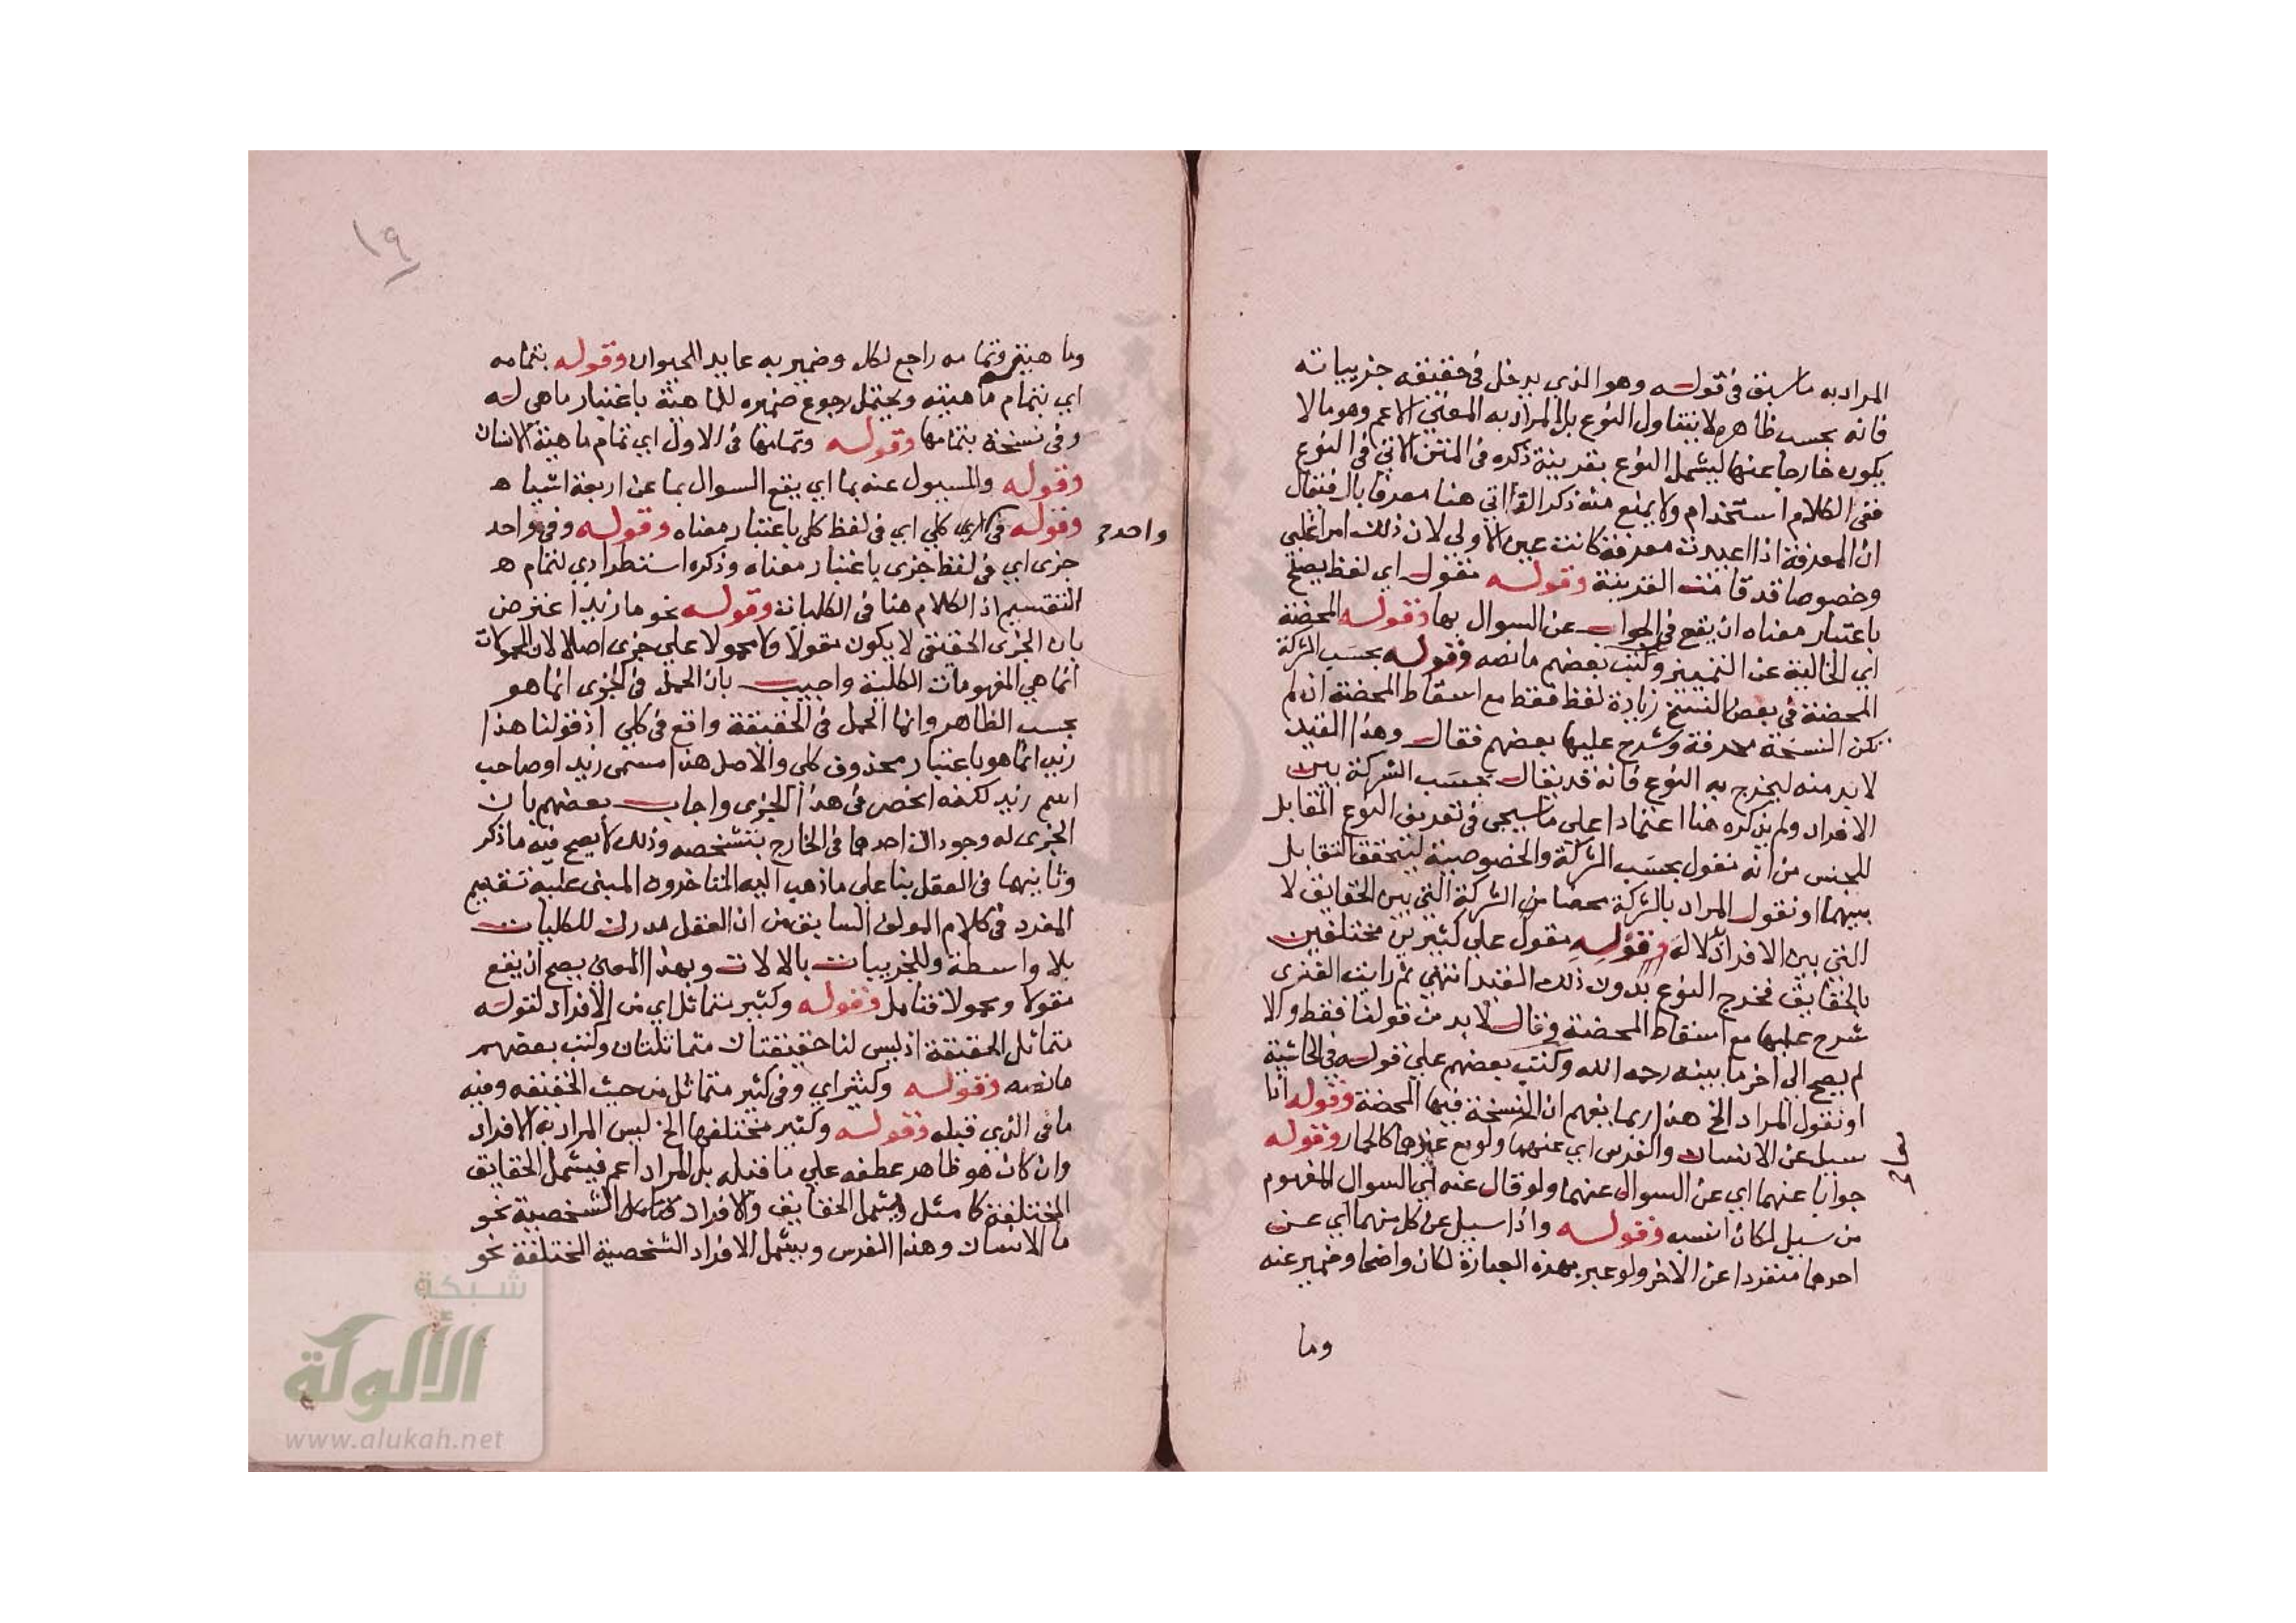 المراد به ما سبق في قوله وهو الذي يدخل في حقيقة جزيياته
فانه بحسب ظاهره لا يتناول النوع بل المراد به المعنى الاعم وهو ما لا
يكون خارجا عنها ليشمل النوع بقرينة ذكره في المتن الاتي في النوع
ففي الكلام استخدام ولا يمنع منه ذكر الذاتي هنا معرفا بال فتقال
ان المعرفة اذا اعيدت معرفة كانت عين الاولى لان ذلك امر اغلبي
وخصوصا قد قامت القرينة وقوله مقول اي لفظ يصلح
باعتبار معناه ان يقع في الجواب عن السوال بها وقوله المحضة
اي الخالية عن التمييز وكتب بعضهم ما نصه وقوله بحسب الشركة
المحضة في بعض النسخ زيادة لفظ فقط مع اسقاط المحضة ان لم
تكن النسخة محرفة وشرح عليها بعضهم فقال وهذا القيد
لا بد منه ليخرج به النوع فانه قد يقال بحسب الشركة بين
الافراد ولم يذكره هنا اعتمادا على ما سيجي في تعريف النوع المقابل
للجنس من انه مقول بحسب الشركة والخصوصية ليتحقق التقابل
بينهما او نقول المراد بالشركة محضا من الشركة التي بين الحقايق لا
التي بين الافراد وقوله مقول على كثيرين مختلفين
بالحقايق مخرج النوع بدون ذلك القيد انتهى ثم رايت الفنري
شرح عليها مع اسقاط المحضة وقال لا بد من قولنا فقط والا
لم يصح الى اخر ما بينه رحمه الله وكتب بعضهم على قوله في الحاشية
او نقول المراد الخ هذا ربما يفهم ان النسخة فيها المحضة وقوله اذا
سيل عن الانسان والفرس اي عنهما ولو مع غيرهما كالحمار وقوله
جوابا عنهما اي عن السوال عنهما ولو قال عنه اي السوال المفهوم
من سيل لكان انسب وقوله واذا سيل عن كل منهما اي عن
احدهما منفردا عن الاخر ولو عبر بهذه العبارة لكان واضحا وضمير عنه
وما
١٩
وما هيته وتمامه راجع لكل وضمير به عايد للحيوان وقوله بتمامه
اي بتمام ماهيته ويحتمل رجوع ضميره للماهية باعتبار ما هي له
وفي نسخة بتمامها وقوله وتمامها في الاول اي تمام ماهية الانسان
وقوله والمسيول عنه بما اي يقع السوال بما عن اربعة اشيا ه
وقوله في كلي اي في لفظ كلي باعتبار معناه وقوله وفي واحد
واحد
جزي اي في لفظ جزي باعتبار معناه وذكره استطرادي لتمام ه
التقسيم اذ الكلام هنا في الكليات وقوله نحو ما زيد اعترض
بان الجزي الحقيقي لا يكون مقولا ولا محمولا على جزي اصلا لان المحمولات
انما هي المفهومات الكلية واجيب بان الحمل في الجزي انما هو
بحسب الظاهر وانما الحمل في الحقيقة واقع في كلي اذ قولنا هذا
زيد انما هو باعتبار محذوف كلي والاصل هذا مسمى زيد او صاحب
اسم زيد لكنه انحصر في هذا الجزي واجاب بعضهم بان
الجزي له وجودان احدهما في الخارج بتشخصه وذلك لا يصح فيه ما ذكر
وثانيهما في العقل بنا على ما ذهب اليه المتاخرون المبني عليه تقسيم
المفرد في كلام المولف السابق من ان العقل مدرك للكليات
بلا واسطة وللجزييات بالالات وبهذا المعنى يصح ان يقع
مقولا ومحمولا فتامل وقوله وكثير متماثل اي من الافراد لقوله
متماثل الحقيقة اذ ليس لنا حقيقتان متماثلتان وكتب بعضهم
ما نصه وقوله وكثير اي وفي كثير متماثل من حيث الحقيقه وفيه
ما في الذي قبله وقوله وكثير مختلفها الخ ليس المراد به الافراد
وان كان هو ظاهر عطفه على ما قبله بل المراد اعم فيشمل الحقايق
المختلفة كما مثل ويشمل الحقايق والافراد الشخصية نحو
ما الانسان وهذا الفرس ويشمل الافراد الشخصية المختلفة نحو
شبكة
الألوكة
www.alukah.net